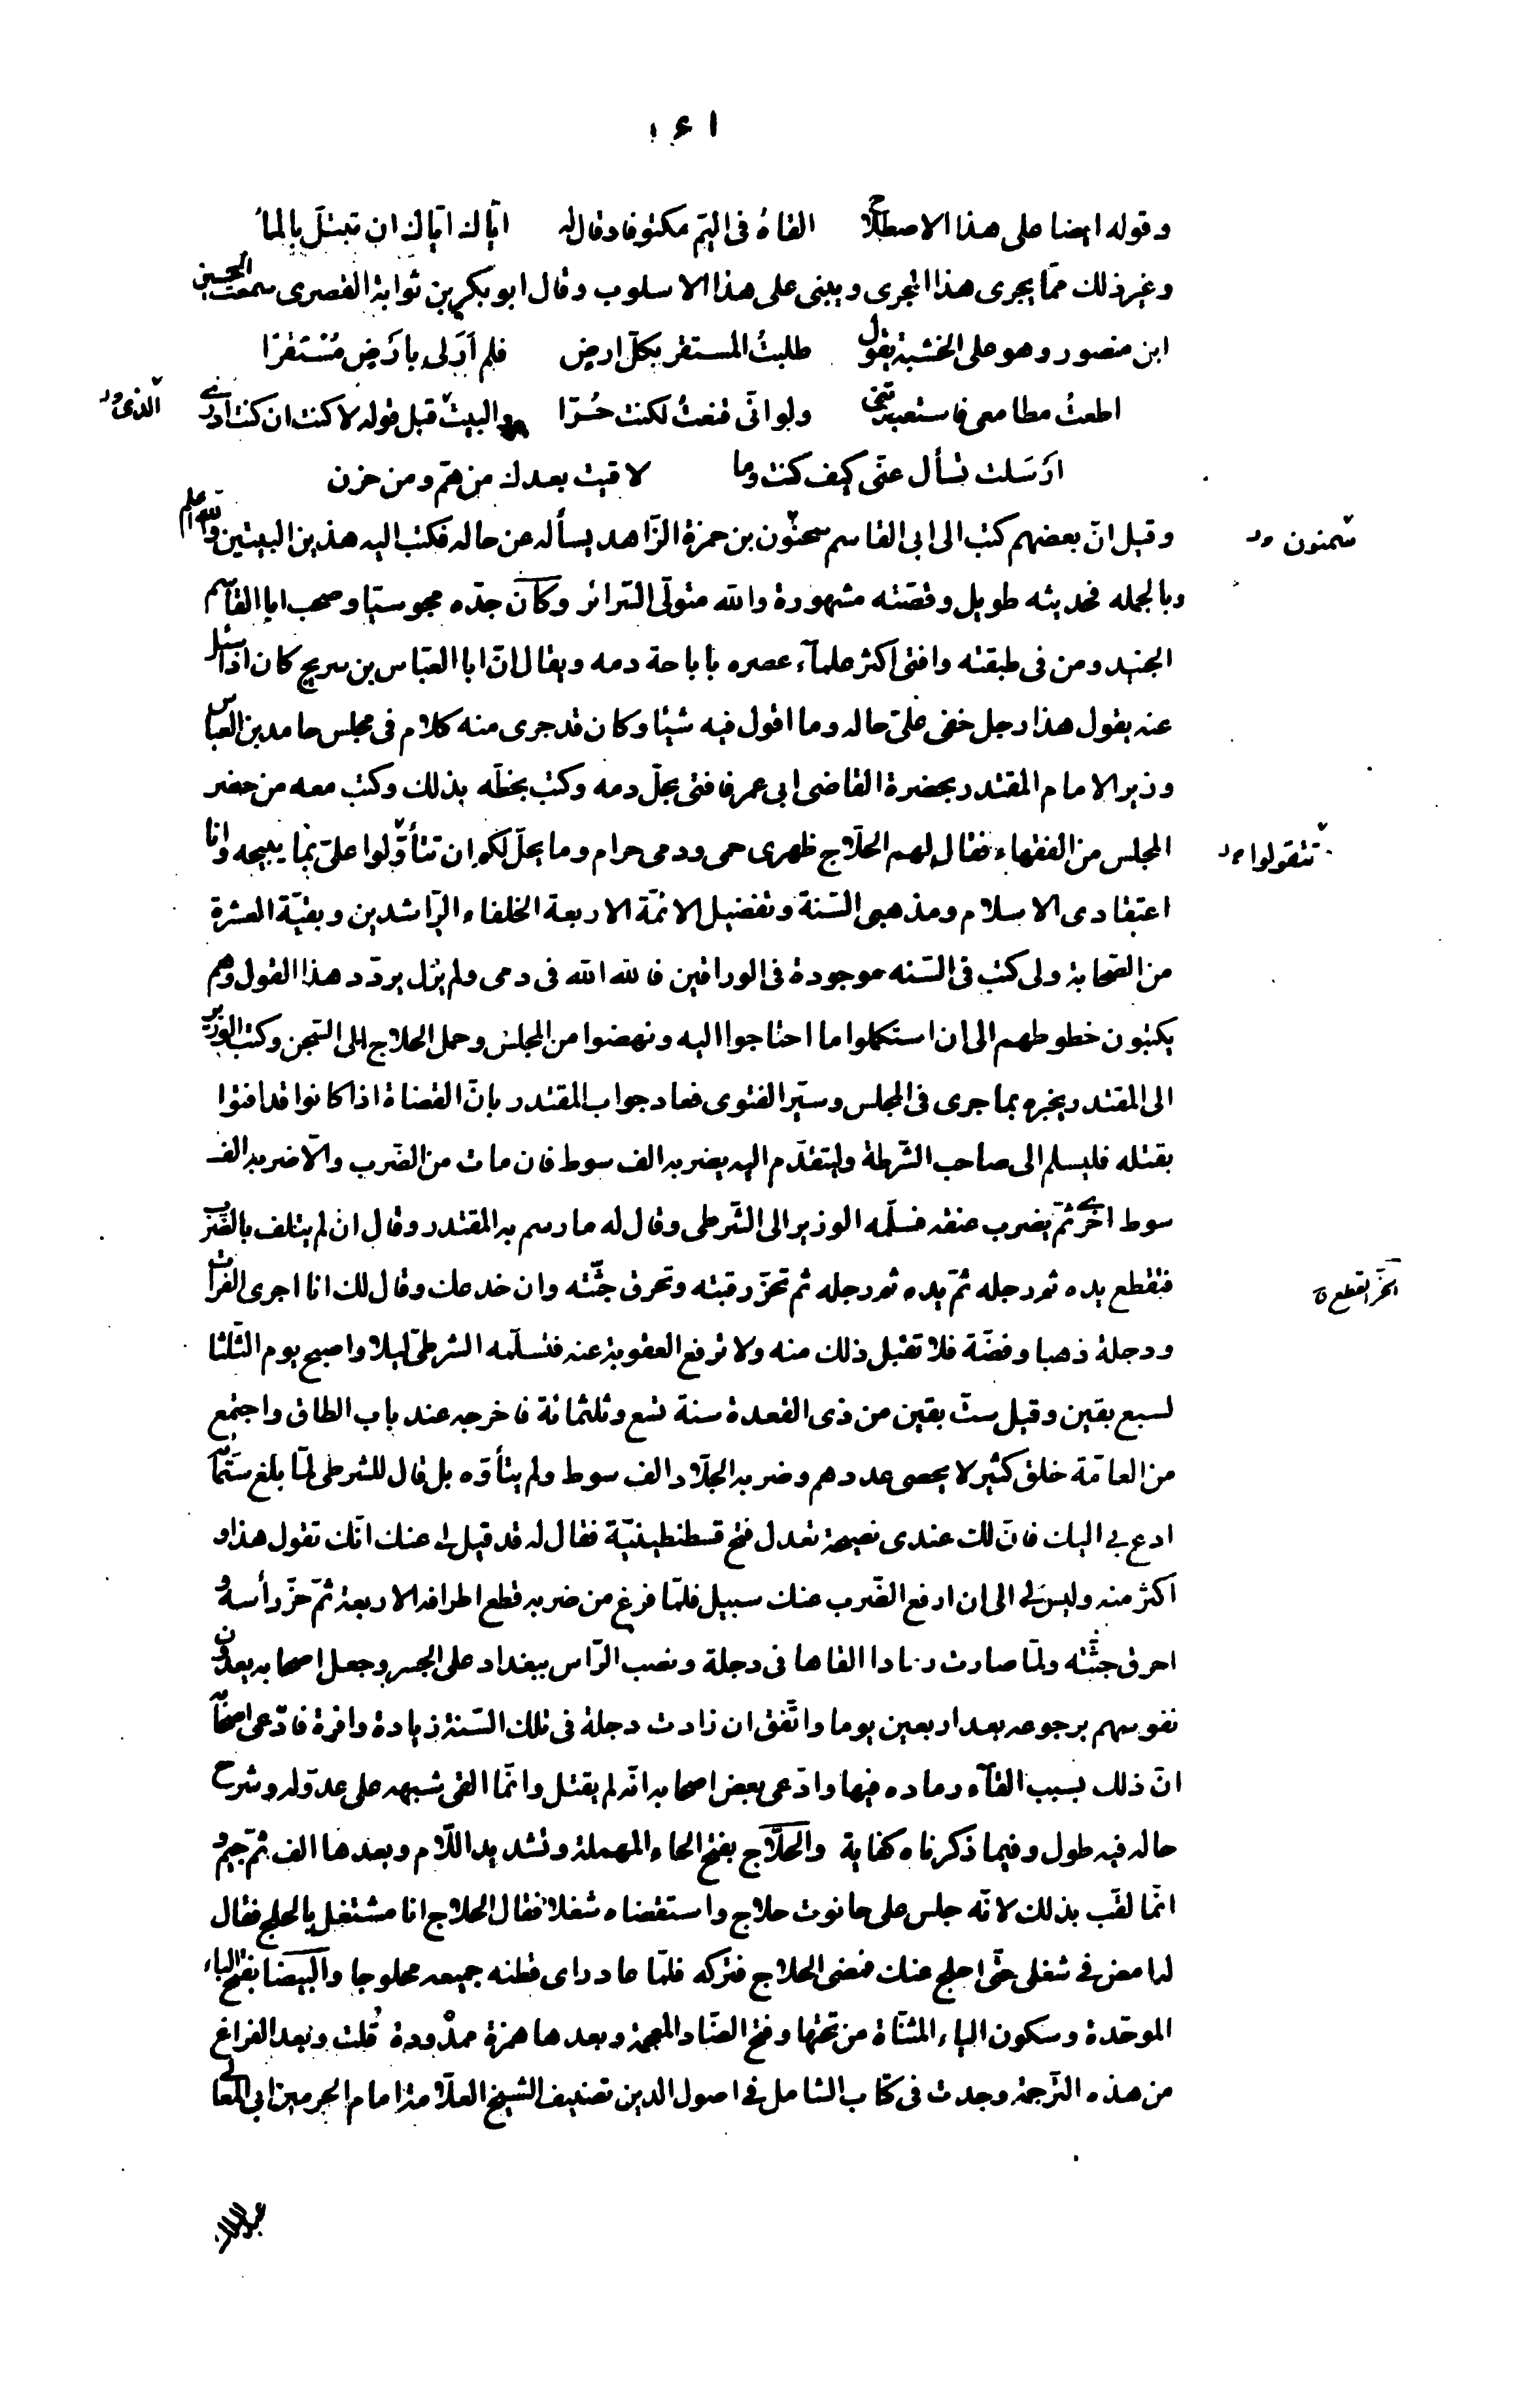 ١٤١
وقوله ايضا على هذا الاصطلاح القاه فى اليم مكتوفا وقال له ايّاك ايّاك ان تبتلّ بالماء
وغير ذلك ممّا يجرى هذا المجرى ويبنى على هذا الاسلوب وقال ابو بكر بن ثوابة القصرى سمعت الحسين
ابن منصور وهو على الخشبة يقول طلبتُ المستقر بكلّ ارض فلم اَرَ لى باَرَضٍ مُسْتَقرّا
اطعتُ مطامعى فاستعبدتنى ولو انّى قنعتُ لكنت حُرّا والبيت قبل قوله لا كنت ان كنت ادرى
الذى ود
ارَسَلت تسأل عنّى كيف كنت وما لاقيت بعدك من همّ ومن حزن
وقيل انّ بعضهم كتب الى ابى القاسم سحنون بن حمزة الزّاهد يسأله عن حاله فكتب اليه هذين البيتين والله اعلم
سمنون ود
وبالجمله فحديثه طويل وقصّته مشهورة والله متولّى السّرائر وكان جدّه مجوسيّا وصحب ابا القاسم
الجنيد ومن فى طبقته وافتى اكثر علمآء عصره باباحة دمه ويقال انّ ابا العبّاس بن سريج كان اذا سئل
عنه يقول هذا رجل خفى علىّ حاله وما اقول فيه شيئا وكان قد جرى منه كلام فى مجلس حامد بن العباس
وزير الامام المقتدر بحضرة القاضى ابى عمر فافتى بحلّ دمه وكتب بخطّه بذلك وكتب معه من حضر
المجلس من الفقهاء فقال لهم الحلّاج ظهرى حمى ودمى حرام وما يحلّ لكم ان تتأوّلوا علىّ بما يبيحه وانا
تتقولوا ود
اعتقادى الاسلام ومذهبى السّنة وتفضيل الائمّة الاربعة الخلفاء الرّاشدين وبقيّة العشرة
من الصّحابة ولى كتب فى السّنه موجودة فى الوراقين فالله الله فى دمى ولم يزل يردّد هذا القول وهم
يكتبون خطوطهم الى ان استكملوا ما احتاجوا اليه ونهضوا من المجلس وحمل الحلاج الى السّجن وكتب الوزير
الى المقتدر يخبره بما جرى فى المجلس وسيّر الفتوى فعاد جواب المقتدر بانّ القضاة اذا كانوا قد افتوا
بقتله فليسلم الى صاحب الشّرطة وليتقدّم اليه يضربه الف سوط فان مات من الضّرب والّا ضربه الف
سوط اخرى ثمّ يضرب عنقه فسلّمه الوزير الى الشّرطى وقال له ما رسم به المقتدر وقال ان لم يتلف بالضّرب
فتقطع يده ثم رجله ثمّ يده ثم رجله ثم تحزّ رقبته وتحرق جثّته وان خدعك وقال لك انا اجرى الفرات
الحزّ القطع
ودجلة ذهبا وفضّة فلا تقبل ذلك منه ولا ترفع العقوبة عنه فتسلّمه الشرطىّ ليلا واصبح يوم الثّلثا
لسبع بقين وقيل ستّ بقين من ذى القعدة سنة تسع وثلثمائة فاخرجه عند باب الطاق واجتمع
من العامّة خلق كثير لا يحصى عددهم وضربه الجلّاد الف سوط ولم يتأوّه بل قال للشرطى لمّا بلغ ستّمائة
ادع بى اليك فانّ لك عندى نصيحة تعدل فتح قسطنطينيّة فقال له قد قيل لى عنك انّك تقول هذا و
اكثر منه وليس لى الى ان ارفع الضّرب عنك سبيل فلمّا فرغ من ضربه قطع اطرافه الاربعة ثمّ حزّ رأسه و
احرق جثّته ولمّا صارت رمادا القاها فى دجلة ونصب الرّاس ببغداد على الجسر وجعل اصحابه يعدون
نفوسهم برجوعه بعد اربعين يوما واتّفق ان زادت دجلة فى تلك السّنة زيادة وافرة فادّعى اصحابه
انّ ذلك بسبب القآء رماده فيها وادّعى بعض اصحابه انّه لم يقتل وانّما القى شبهه على عدوّ له وشرح
حاله فيه طول وفيما ذكرناه كفاية والحلّاج بفتح الحاء المهملة وتشديد اللّام وبعدها الف ثمّ جيم و
انّما لقّب بذلك لانّه جلس على حانوت حلاج واستقضاه شغلا فقال الحلاج انا مشتغل بالحلج فقال
له امض فى شغلى حتّى احلج عنك فمضى الحلاج فتركه فلمّا عاد راى قطنه جميعه محلوجا والبيضا بفتح الباء
الموحّدة وسكون الياء المثنّاة من تحتها وفتح الضّاد المعجمة وبعدها همزة ممدودة قُلت وبعد الفراغ
من هذه التّرجمة وجدت فى كتاب الشامل فى اصول الدين تصنيف الشيخ العلّامة امام الحرمين ابى المعالى